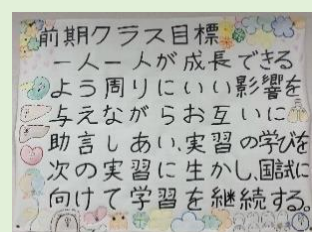 前期クラス目標
一人一人が成長できる
よう周りにいい影響を
与えながらお互いに
助言しあい、実習の学びを
次の実習に生かし、国試に
向けて学習を継続する。